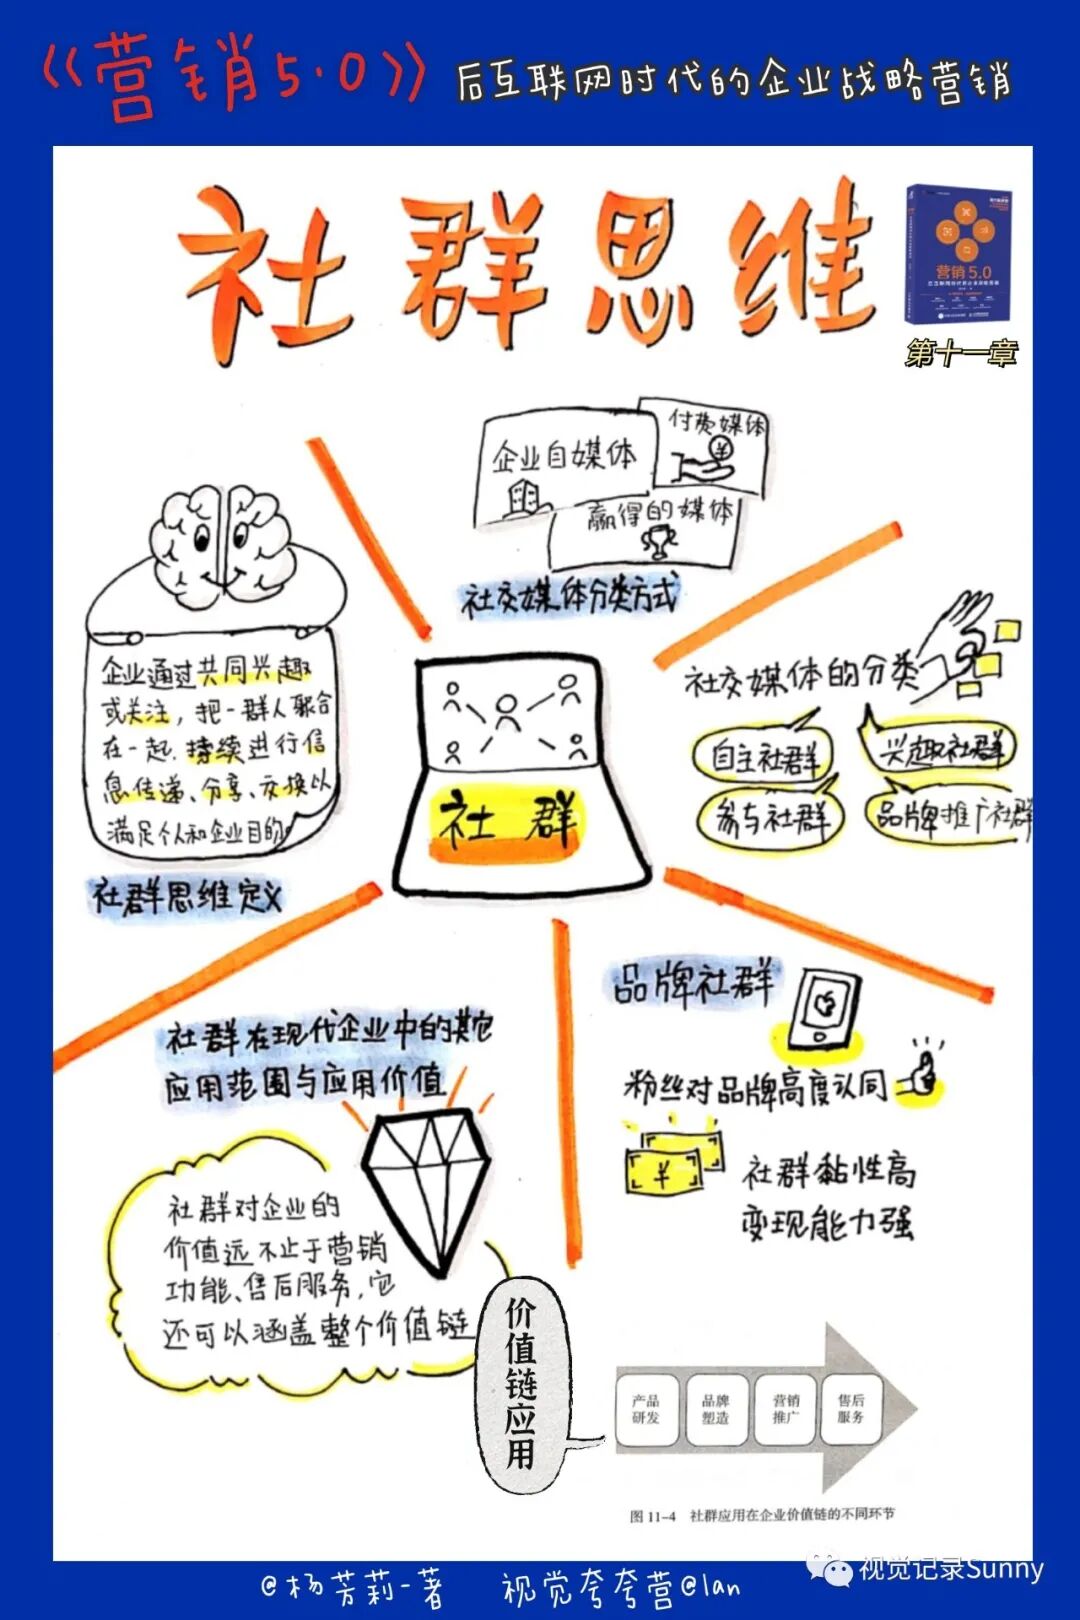 《营销5.0》后互联网时代的企业战略营销
社群思维
营销5.0
第十一章
企业自媒体
付费媒体
赢得的媒体
社交媒体分类方式
企业通过共同兴趣
或关注，把一群人聚合
在一起.持续进行信
息传递、分享、交换以
满足个人和企业目的
社群思维定义
社群
社交媒体的分类
自主社群
兴趣社群
参与社群
品牌推广社群
品牌社群
粉丝对品牌高度认同
¥
社群黏性高
变现能力强
社群在现代企业中的其它
应用范围与应用价值
社群对企业的
价值远不止于营销
功能、售后服务，它
还可以涵盖整个价值链
价值链应用
产品
研发
品牌
塑造
营销
推广
售后
服务
图 11-4 社群应用在企业价值链的不同环节
视觉记录Sunny
@杨芳莉-著 视觉夸夸营@lan